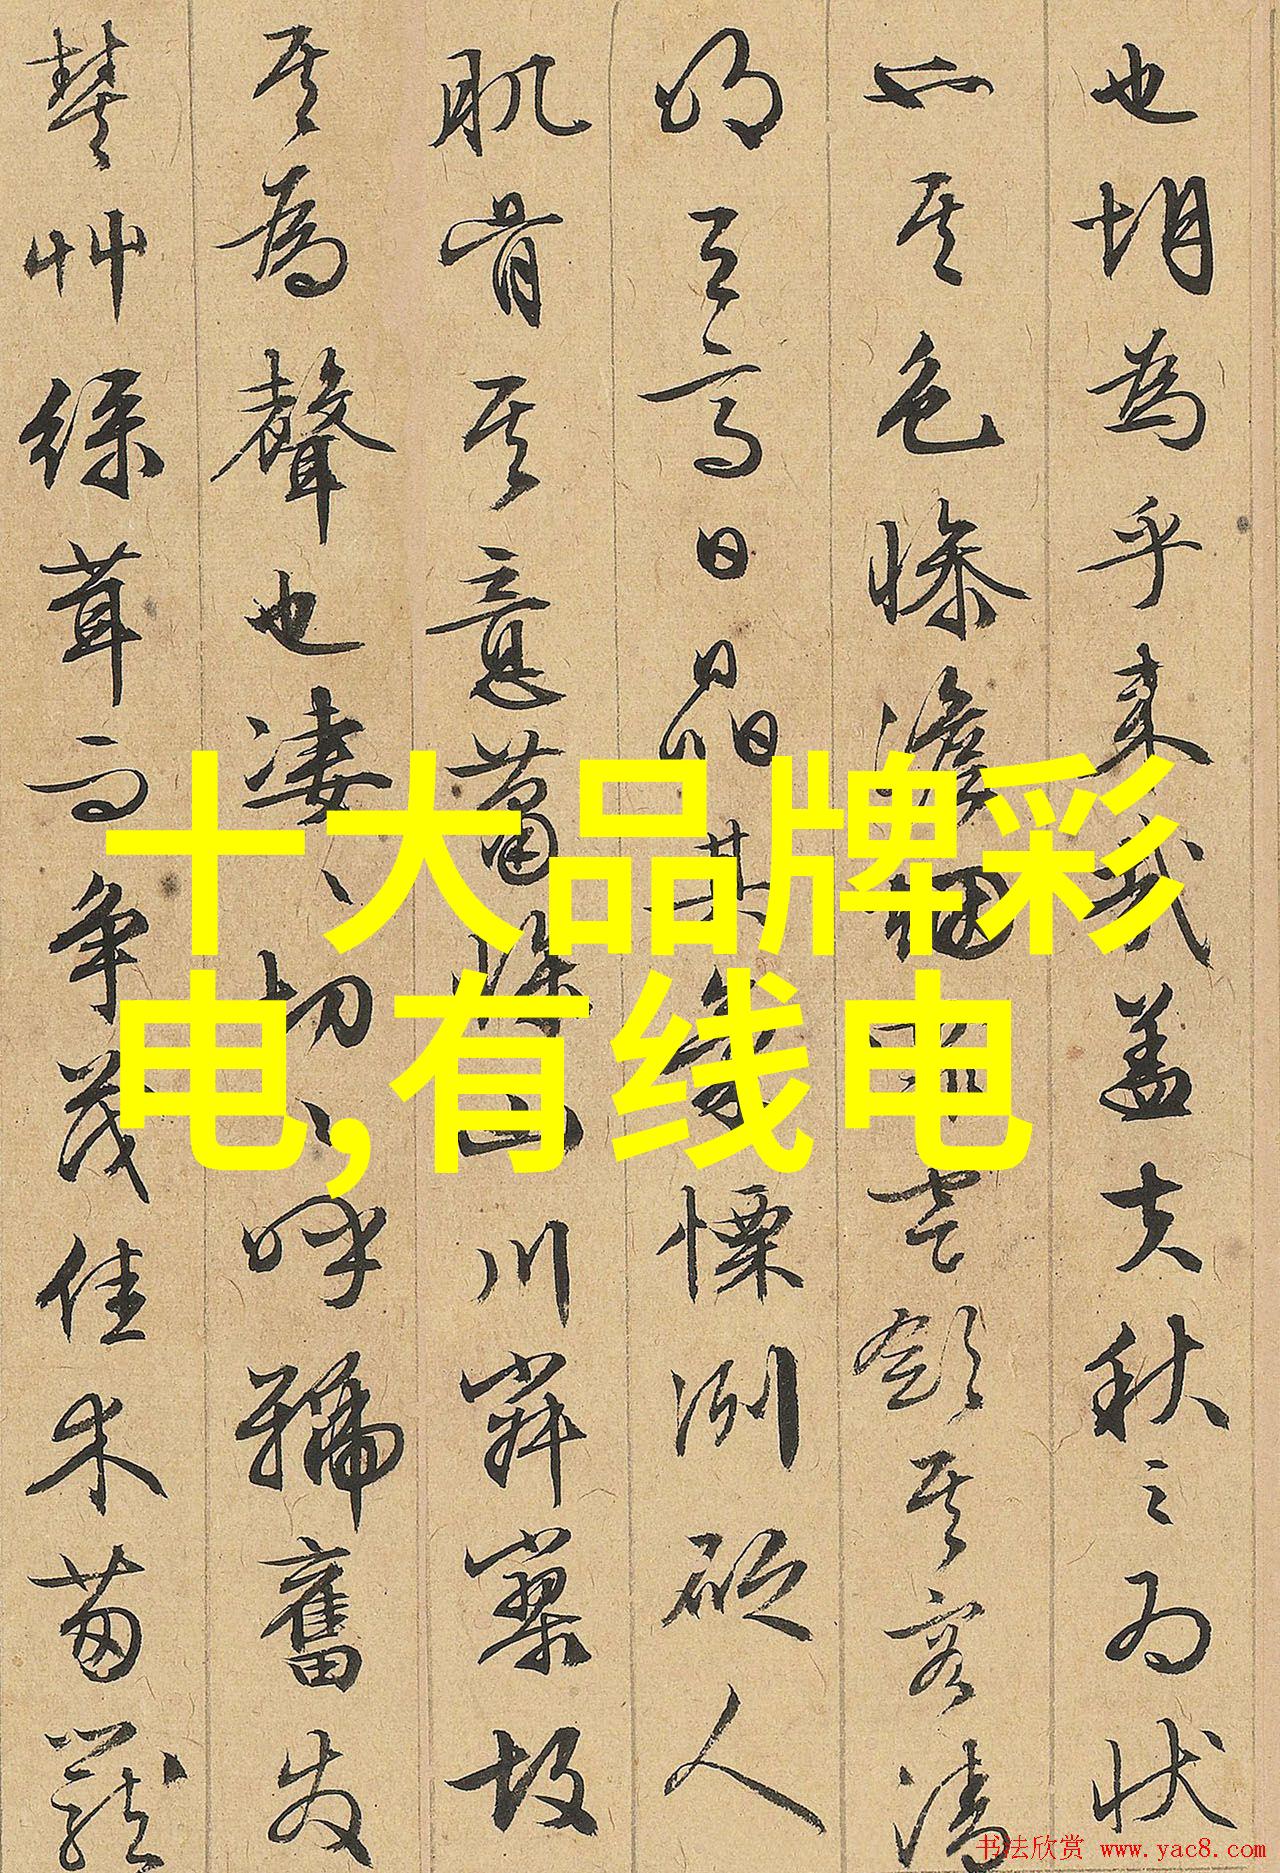 也胡為乎来哉盖夫秋之為状
也其色惨澹烟霏雲斂其容清
明天高日晶其氣慄冽砭人
肌骨其意蕭條山川寂寥故
其為聲也凄、切、呼號奮发
豐艸緑茸而争茂佳木葱蘢
十大品牌彩
电,有线电
书法欣赏 www.yac8.com